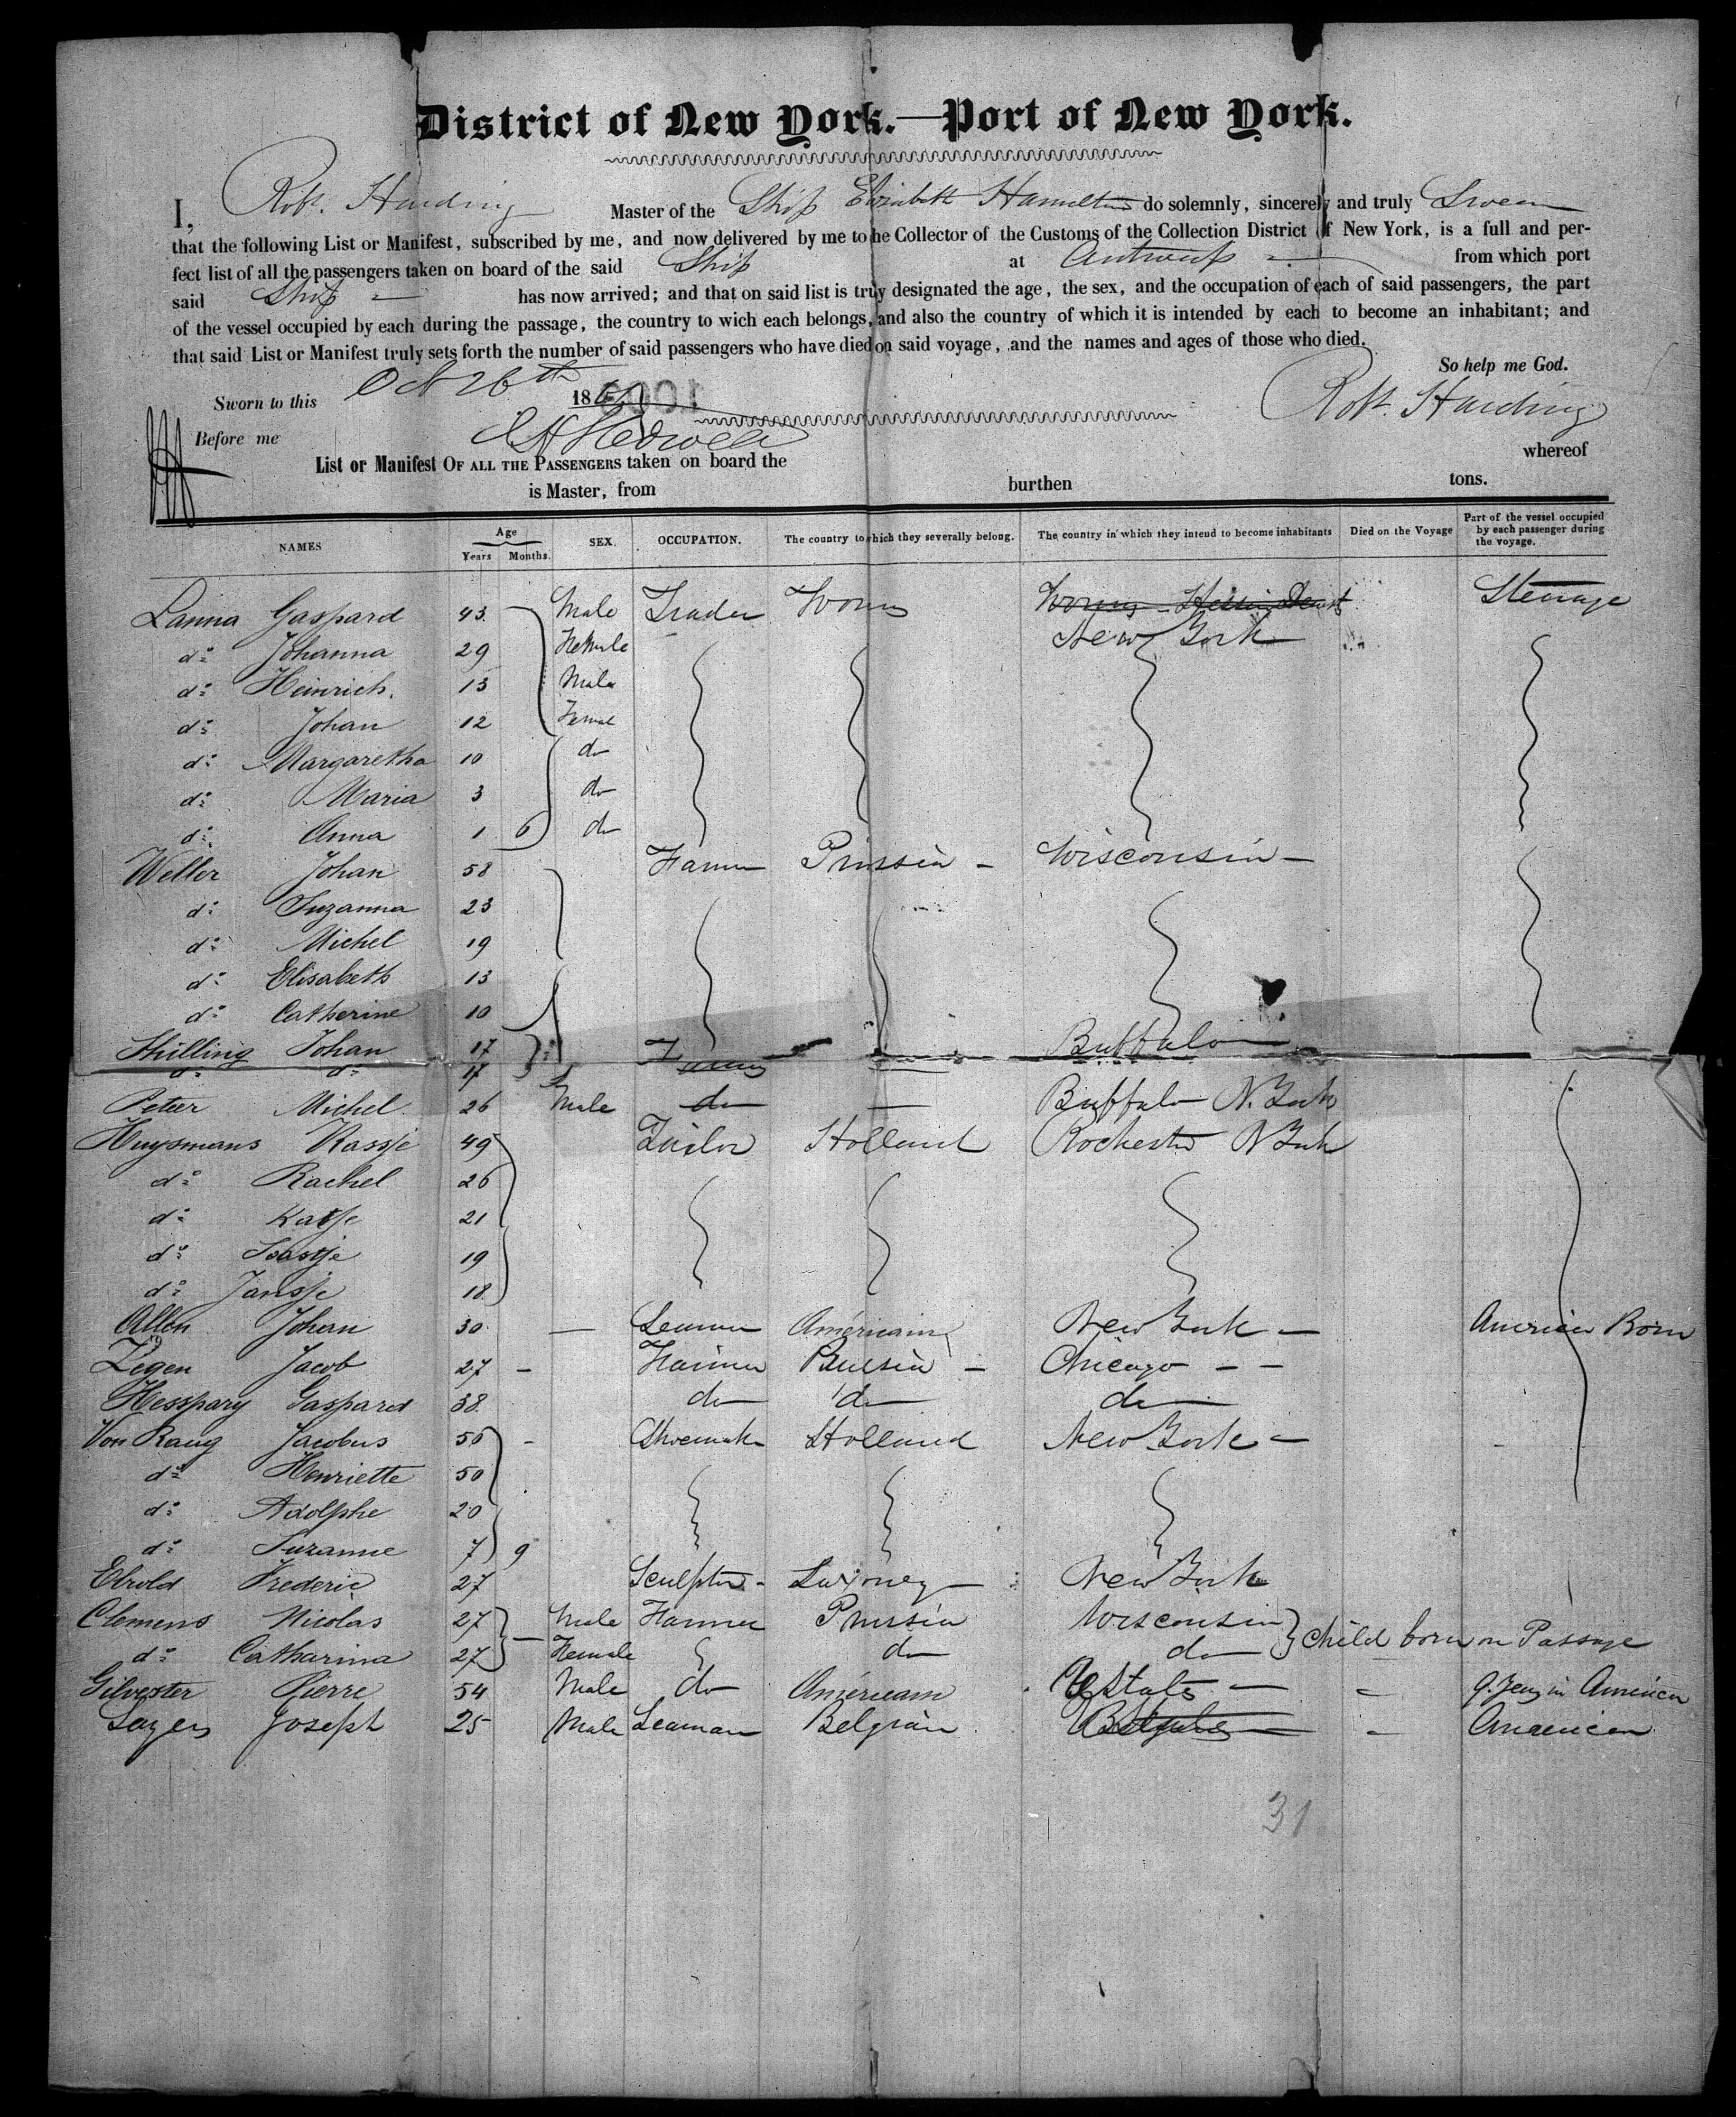 District of New York.—Port of New York.
I, Robt. Harding Master of the Ship Elizabeth Hamilton do solemnly, sincerely and truly Swear
that the following List or Manifest, subscribed by me, and now delivered by me to he Collector of the Customs of the Collection District of New York, is a full and per-
fect list of all the passengers taken on board of the said Ship at Antwerp from which port
said Ship has now arrived; and that on said list is truly designated the age, the sex, and the occupation of each of said passengers, the part
of the vessel occupied by each during the passage, the country to wich each belongs, and also the country of which it is intended by each to become an inhabitant; and
that said List or Manifest truly sets forth the number of said passengers who have died on said voyage, and the names and ages of those who died.
So help me God.
Sworn to this Oct 26th 186 1001 Robt. Harding
Before me
List or Manifest OF ALL THE PASSENGERS taken on board the whereof
is Master, from burthen tons.
NAMES Age Years Months. SEX. OCCUPATION. The country to which they severally belong. The country in which they intend to become inhabitants Died on the Voyage Part of the vessel occupied by each passenger during the voyage.
Lanna Gaspard 43 Male Trader Worms Worms Steerage
New York
do Johanna 29 Female
do Heinrich. 13 Male
do Johan 12 Femal
do Margaretha 10 do
do Maria 3 do
do Anna 1 6 do
Weller Johan 58 Farmer Prussia - Wisconsin -
do Suzanna 23
do Michel 19
do Elisabeth 13
do Catherine 10
Shilling Johan 17 Buffalo
do do 17
Peter Michel 26 Male do — Buffalo N. York
Huysmans Kassje 49 Tailor Holland Rochester N York
do Rachel 26
do Katje 21
do Saartje 19
do Jansje 18
Allen Johan 30 — Seaman Américain New York — American Born
Zegen Jacob 27 - Farmer Prussia - Chicago - -
Hesspary Gaspard 38 do do do
Von Raug Jacobus 56 - Shoemaker Holland New York -
do Henriette 50
do Adolphe 20
do Suzanne 7 9
Ebold Frederic 27 Sculptor - New York
Clemens Nicolas 27 Male Farmer Prussia Wisconsin
do Catharina 27 Female do do Child born on Passage
Gilvester Pierre 54 Male do Américain States - - 9. Years in America
Joseph 25 Male Seaman Belgian - American
31